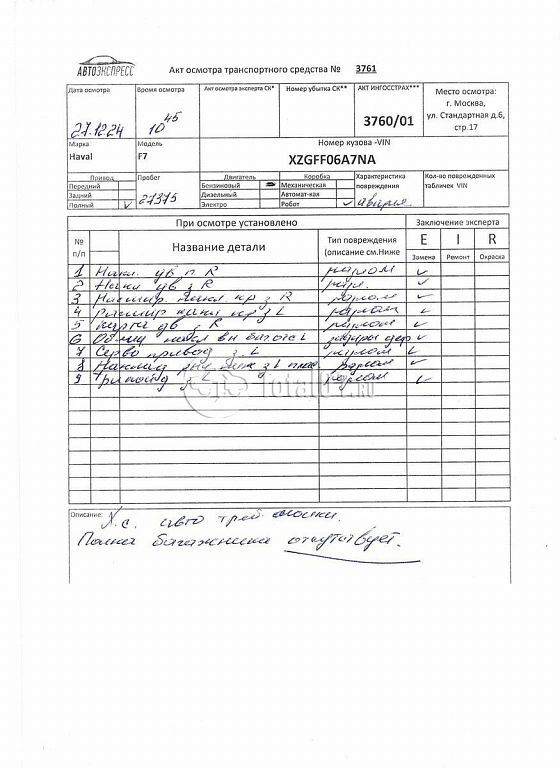 АВТОЭКСПРЕСС
Акт осмотра транспортного средства № 3761
Дата осмотра
27.12.24
Время осмотра
10 45
Акт осмотра эксперта СК*
Номер убытка СК**
АКТ ИНГОССТРАХ***
3760/01
Место осмотра:
г. Москва,
ул. Стандартная д.6,
стр.17
Марка
Haval
Модель
F7
Номер кузова -VIN
XZGFF06A7NA
Привод
Передний
Задний
Полный
Пробег
27375
Двигатель
Бензиновый
Дизельный
Электро
Коробка
Механическая
Автомат-кая
Робот
Характеристика
повреждения
авария
Кол-во поврежденных
табличек VIN
№
п/п
При осмотре установлено
Название детали
Тип повреждения
(описание см.Ниже
Заключение эксперта
E I R
Замена Ремонт Окраска
1 Накл. дв п R разлом
2 Накл дв з R
3 накл. кр з R разлом
4 накл кр з L разлом
5 дв R разлом
6 Облиц
7 Серво привод з. L разлом
8 з L разлом
9 з L разлом
TotalO1.ru
Описание:
А.с. авто треб. мойки.
Полка багажника отсутствует.